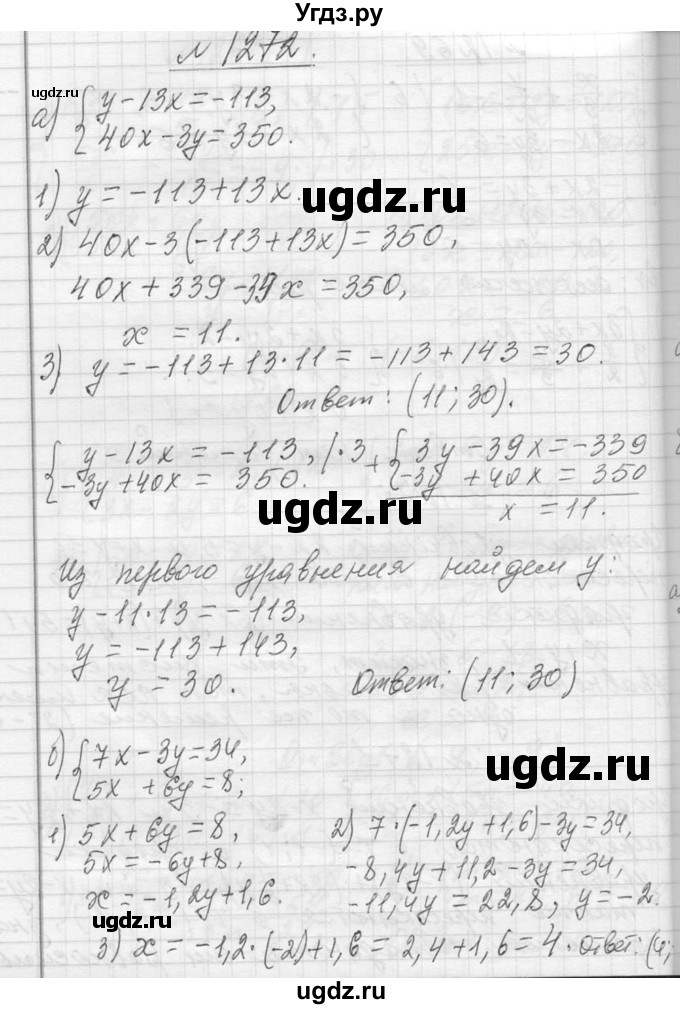 Угдз.ру
№ 1272.
ugdz.ru
а) { y-13x=-113,
40x-3y=350.
1) y=-113+13x.
ugdz.ru
2) 40x-3(-113+13x)=350,
40x+339-39x=350,
x =11.
3) y=-113+13·11=-113+143=30.
ugdz.ru
Ответ: (11; 30).
{ y-13x=-113, |·3 + { 3y-39x=-339
-3y+40x= 350. -3y+40x= 350
ugdz.ru
x =11.
Из первого уравнения найдем y:
y-11·13=-113,
y=-113+143,
y=30. Ответ: (11; 30)
б) { 7x-3y=34,
5x+6y=8;
ugdz.ru
1) 5x+6y=8, 2) 7·(-1,2y+1,6)-3y=34,
5x=-6y+8, -8,4y+11,2-3y=34,
x=-1,2y+1,6. -11,4y=22,8, y=-2.
ugdz.ru
3) x=-1,2·(-2)+1,6=2,4+1,6=4. Ответ: (4;
ugdz.ru